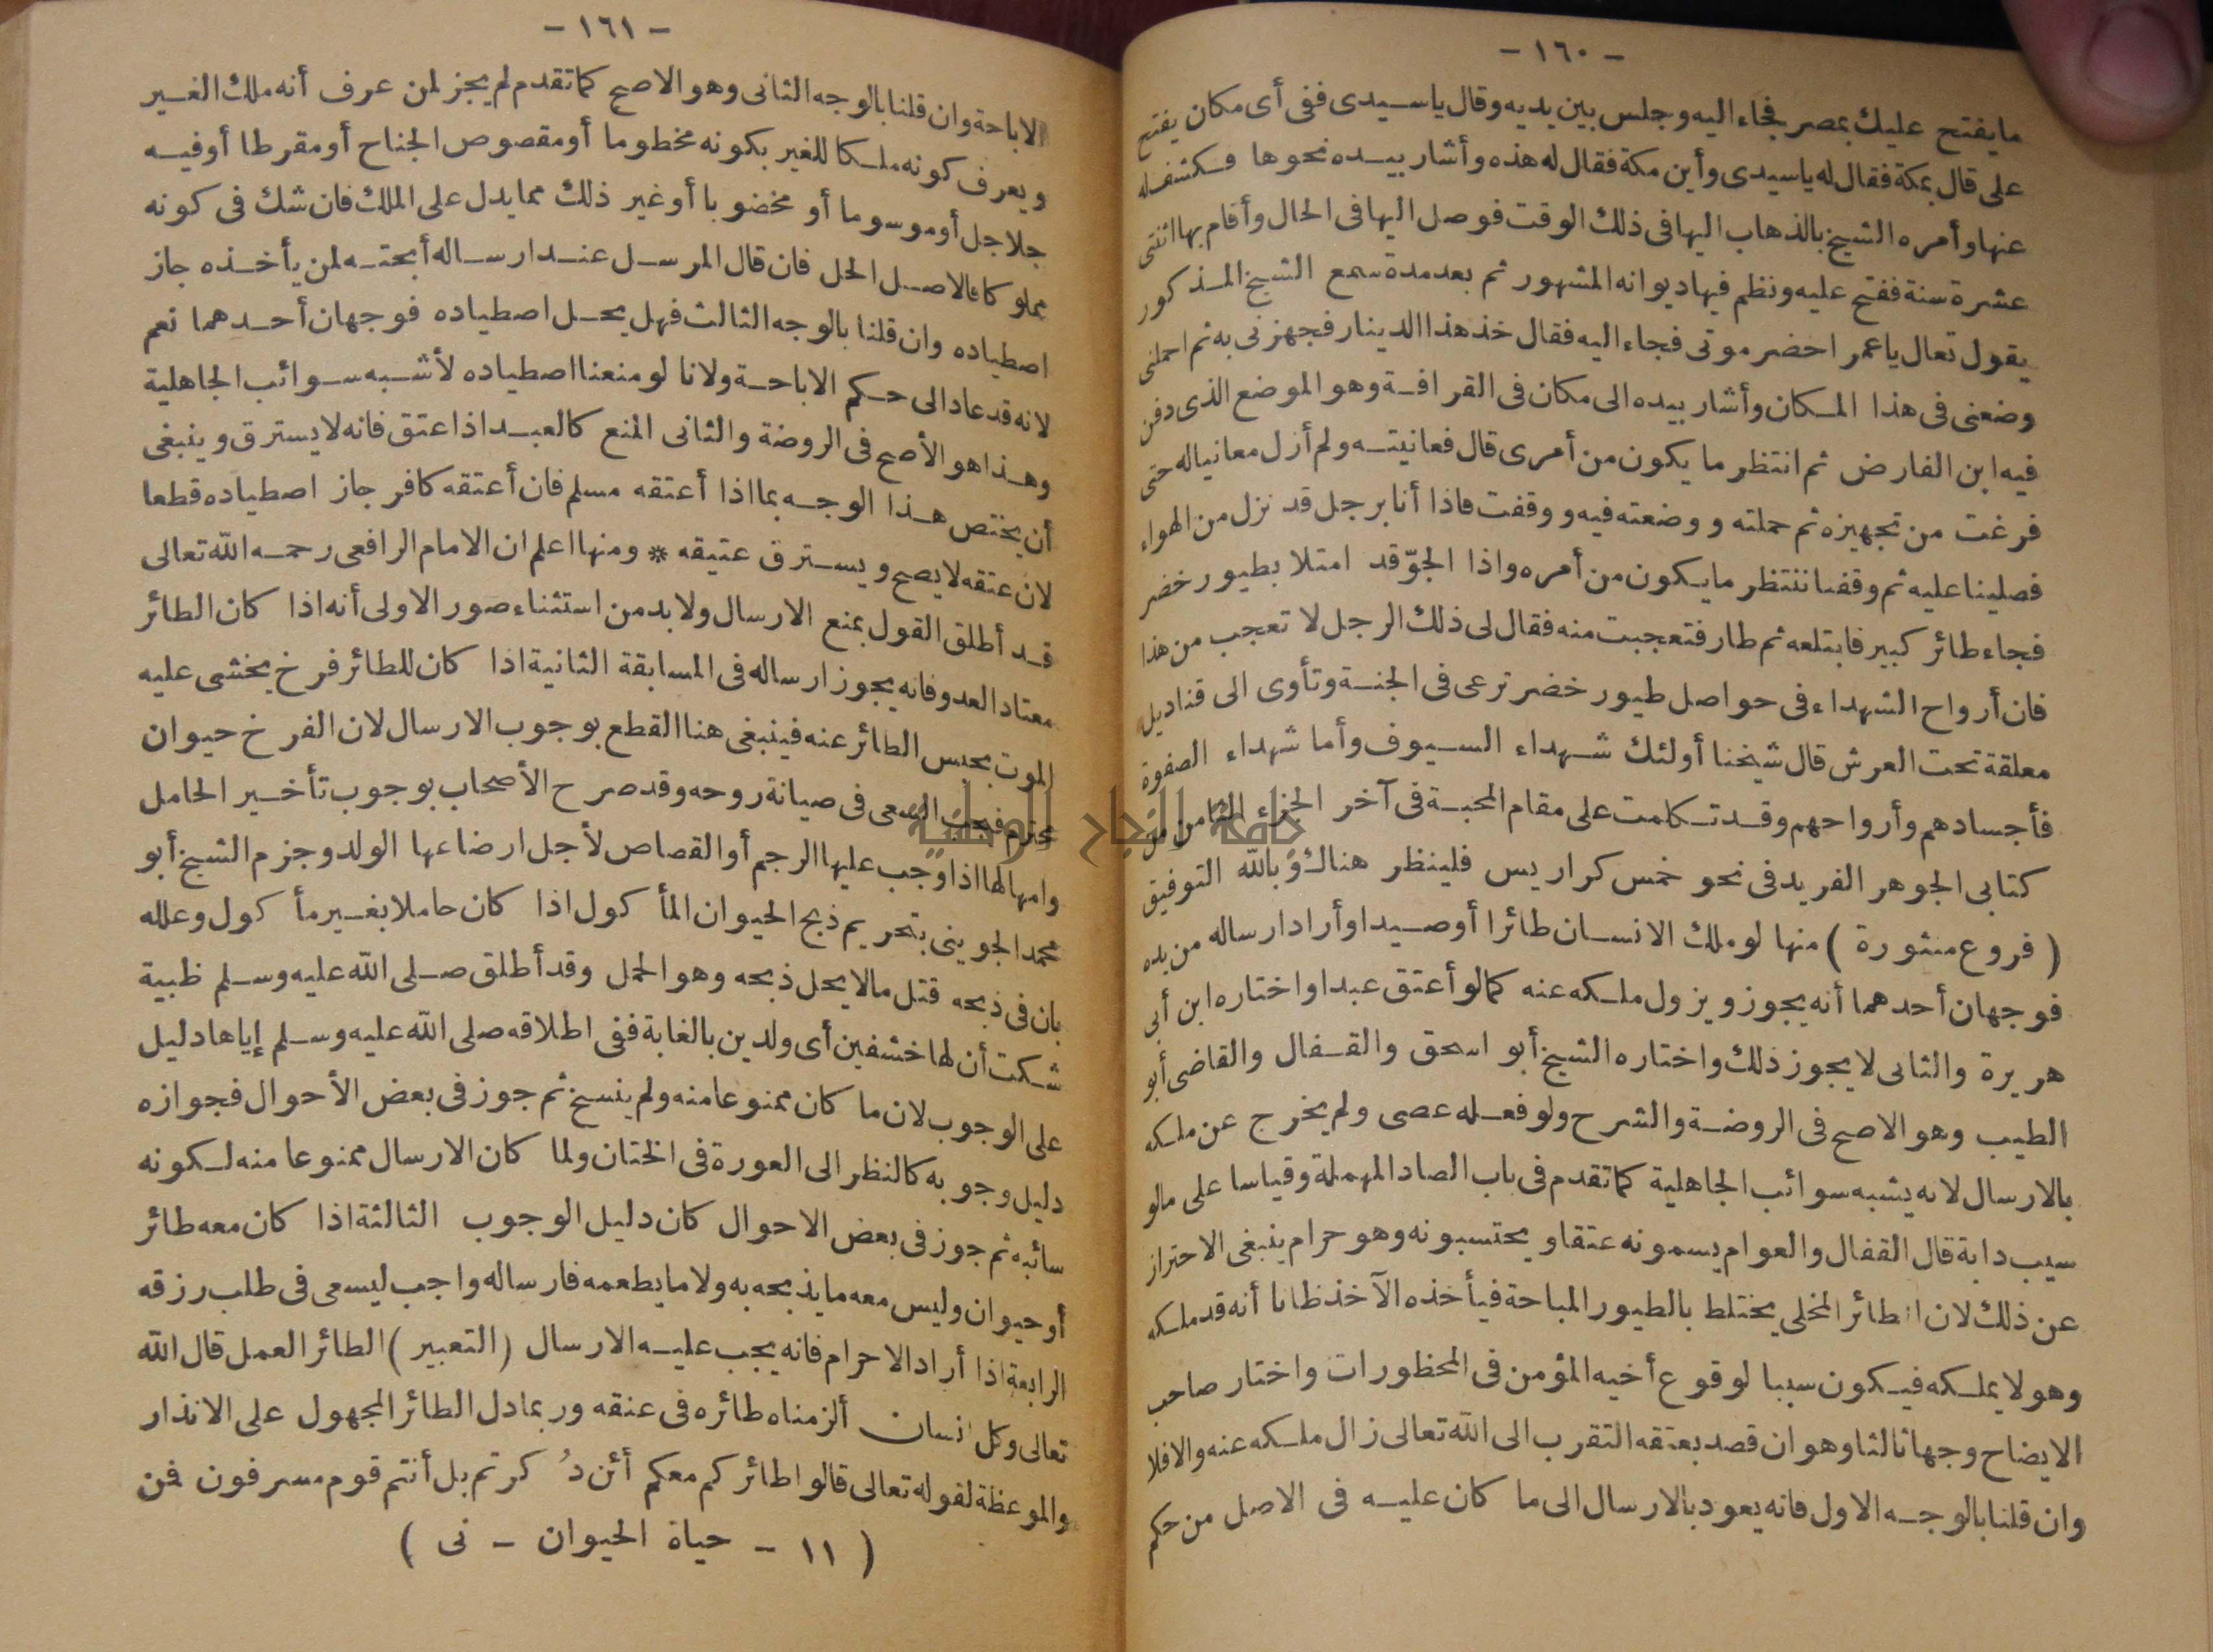 – ١٦٠ –
ما يفتح عليك بمصر فجاء اليه وجلس بين يديه وقال ياسيدى ففى أى مكان يفتح
على قال بمكة فقال له ياسيدى وأين مكة فقال له هذه وأشار بيده نحوها فكشف له
عنها وأمره الشيخ بالذهاب اليها فى ذلك الوقت فوصل اليها فى الحال وأقام بها اثنتى
عشرة سنة ففتح عليه ونظم فيها ديوانه المشهور ثم بعد مدة سمع الشيخ المذكور
يقول تعال ياعمر احضر موتى فجاء اليه فقال خذ هذا الدينار فجهزنى به ثم احملنى
وضعنى فى هذا المكان وأشار بيده الى مكان فى القرافة وهو الموضع الذى دفن
فيه ابن الفارض ثم انتظر ما يكون من أمرى قال فعانيته ولم أزل معانيا له حتى
فرغت من تجهيزه ثم حملته ووضعته فيه ووقفت فاذا أنا برجل قد نزل من الهواء
فصلينا عليه ثم وقفنا ننتظر ما يكون من أمره واذا الجوّ قد امتلا بطيور خضر
فجاء طائر كبير فابتلعه ثم طار فتعجبت منه فقال لى ذلك الرجل لا تعجب من هذا
فان أرواح الشهداء فى حواصل طيور خضر ترعى فى الجنة وتأوى الى قناديل
معلقة تحت العرش قال شيخنا أولئك شهداء السيوف وأما شهداء الصفوة
فأجسادهم وأرواحهم وقد تكلمت على مقام المحبة فى آخر الجزء الثامن من
كتابى الجوهر الفريد فى نحو خمس كراريس فلينظر هناك وبالله التوفيق
( فروع منثورة ) منها لو ملك الانسان طائرا أو صيدا وأراد ارساله من يده
فوجهان أحدهما أنه يجوز ويزول ملكه عنه كما لو أعتق عبدا واختاره ابن أبى
هريرة والثانى لا يجوز ذلك واختاره الشيخ أبو اسحق والقفال والقاضى أبو
الطيب وهو الاصح فى الروضة والشرح ولو فعله عصى ولم يخرج عن ملكه
بالارسال لانه يشبه سوائب الجاهلية كما تقدم فى باب الصاد المهملة وقياسا على مالو
سيب دابة قال القفال والعوام يسمونه عتقا ويحتسبونه وهو حرام ينبغى الاحتراز
عن ذلك لان الطائر المخلى يختلط بالطيور المباحة فيأخذه الآخذ ظانا أنه قد ملكه
وهو لا يملكه فيكون سببا لوقوع أخيه المؤمن فى المحظورات واختار صاحب
الايضاح وجها ثالثا وهو ان قصد بعتقه التقرب الى الله تعالى زال ملكه عنه والا فلا
وان قلنا بالوجه الاول فانه يعود بالارسال الى ما كان عليه فى الاصل من حكم
– ١٦١ –
الاباحة وان قلنا بالوجه الثانى وهو الاصح كما تقدم لم يجز لمن عرف أنه ملك الغير
ويعرف كونه ملكا للغير بكونه مخطوما أو مقصوص الجناح أو مقرطا أو فيه
جلاجل أو موسوما أو مخضوبا أو غير ذلك مما يدل على الملك فان شك فى كونه
مملوكا فالاصل الحل فان قال المرسل عند ارساله أبحته لمن يأخذه جاز
اصطياده وان قلنا بالوجه الثالث فهل يحل اصطياده فوجهان أحدهما نعم
لانه قد عاد الى حكم الاباحة ولانا لو منعنا اصطياده لأشبه سوائب الجاهلية
وهذا هو الأصح فى الروضة والثانى المنع كالعبد اذا عتق فانه لا يسترق وينبغى
أن يختص هذا الوجه بما اذا أعتقه مسلم فان أعتقه كافر جاز اصطياده قطعا
لان عتقه لا يصح ويسترق عتيقه * ومنها اعلم ان الامام الرافعى رحمه الله تعالى
قد أطلق القول بمنع الارسال ولا بد من استثناء صور الاولى أنه اذا كان الطائر
معتاد العدو فانه يجوز ارساله فى المسابقة الثانية اذا كان للطائر فرخ يخشى عليه
الموت بحبس الطائر عنه فينبغى هنا القطع بوجوب الارسال لان الفرخ حيوان
محترم فيجب السعى فى صيانة روحه وقد صرح الأصحاب بوجوب تأخير الحامل
وامهالها اذا وجب عليها الرجم أو القصاص لأجل ارضاعها الولد وجزم الشيخ أبو
محمد الجوينى بتحريم ذبح الحيوان المأكول اذا كان حاملا بغير مأكول وعلله
بان فى ذبحه قتل ما لا يحل ذبحه وهو الحمل وقد أطلق صلى الله عليه وسلم ظبية
شكت أن لها خشفين أى ولدين بالغابة ففى اطلاقه صلى الله عليه وسلم إياها دليل
على الوجوب لان ما كان ممنوعا منه ولم ينسخ ثم جوز فى بعض الأحوال فجوازه
دليل وجوبه كالنظر الى العورة فى الختان ولما كان الارسال ممنوعا منه لكونه
سائبه ثم جوز فى بعض الاحوال كان دليل الوجوب الثالثة اذا كان معه طائر
أو حيوان وليس معه ما يذبحه به ولا ما يطعمه فارساله واجب ليسعى فى طلب رزقه
الرابعة اذا أراد الاحرام فانه يجب عليه الارسال (التعبير) الطائر العمل قال الله
تعالى وكل انسان ألزمناه طائره فى عنقه وربما دل الطائر المجهول على الانذار
والموعظة لقوله تعالى قالوا طائركم معكم أئن ذكرتم بل أنتم قوم مسرفون فمن
( ١١ – حياة الحيوان – نى )
جامعة النجاح الوطنية